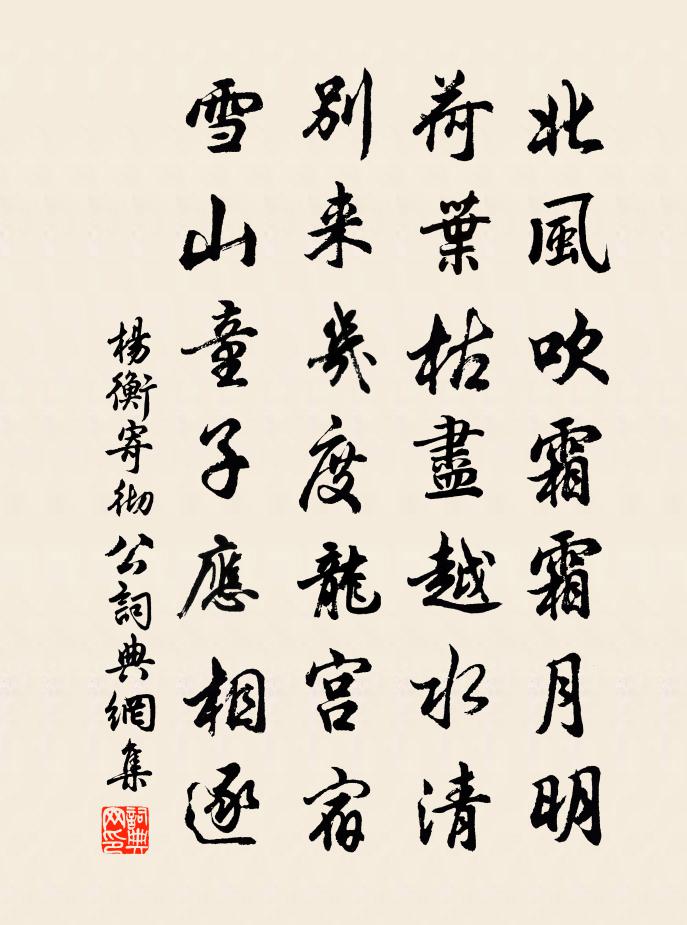 北風吹霜霜月明
荷葉枯盡越水清
別来幾度龍宮宿
雪山童子應相逐
楊衡寄彻公詞典網集
詞典網印